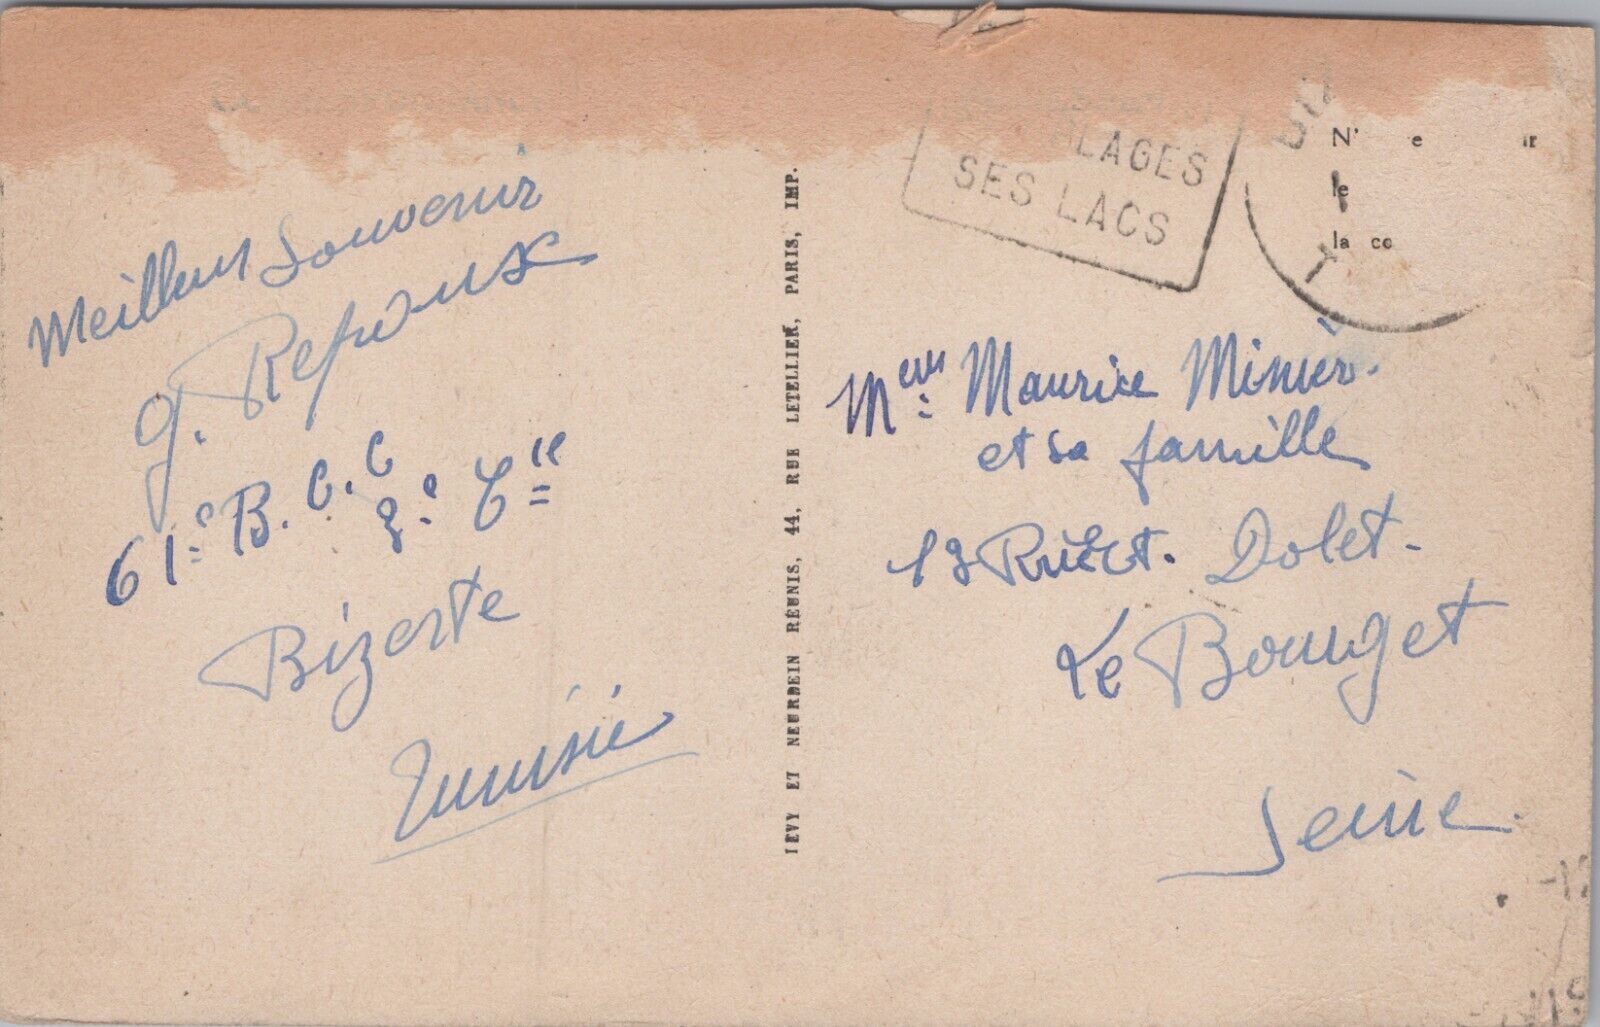 Meilleur Souvenir
G. Repoux
61.e B.C.C
3.e Cie
Bizerte
Tunisie
LEVY ET NEURDEIN RÉUNIS, 44, RUE LETELLIER, PARIS, IMP.
LAGES
SES LACS
N' e ir
le
la co
Meur Maurice Minier.
et sa famille
13 Rue Et. Dolet.
Le Bourget
Seine.